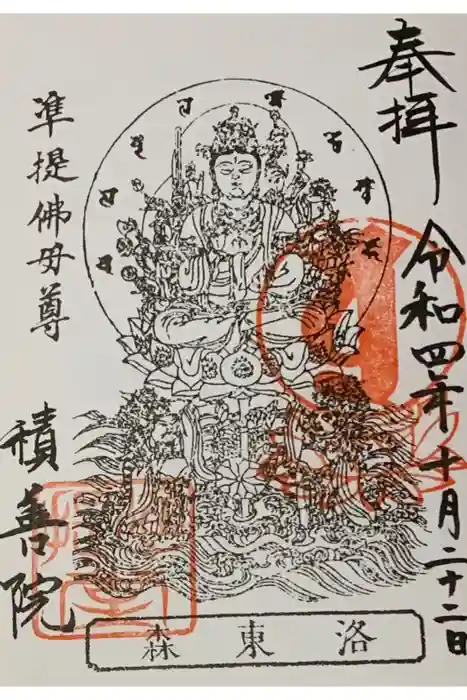 奉拝
令和四年十月二十二日
准提佛母尊
積善院
洛東森